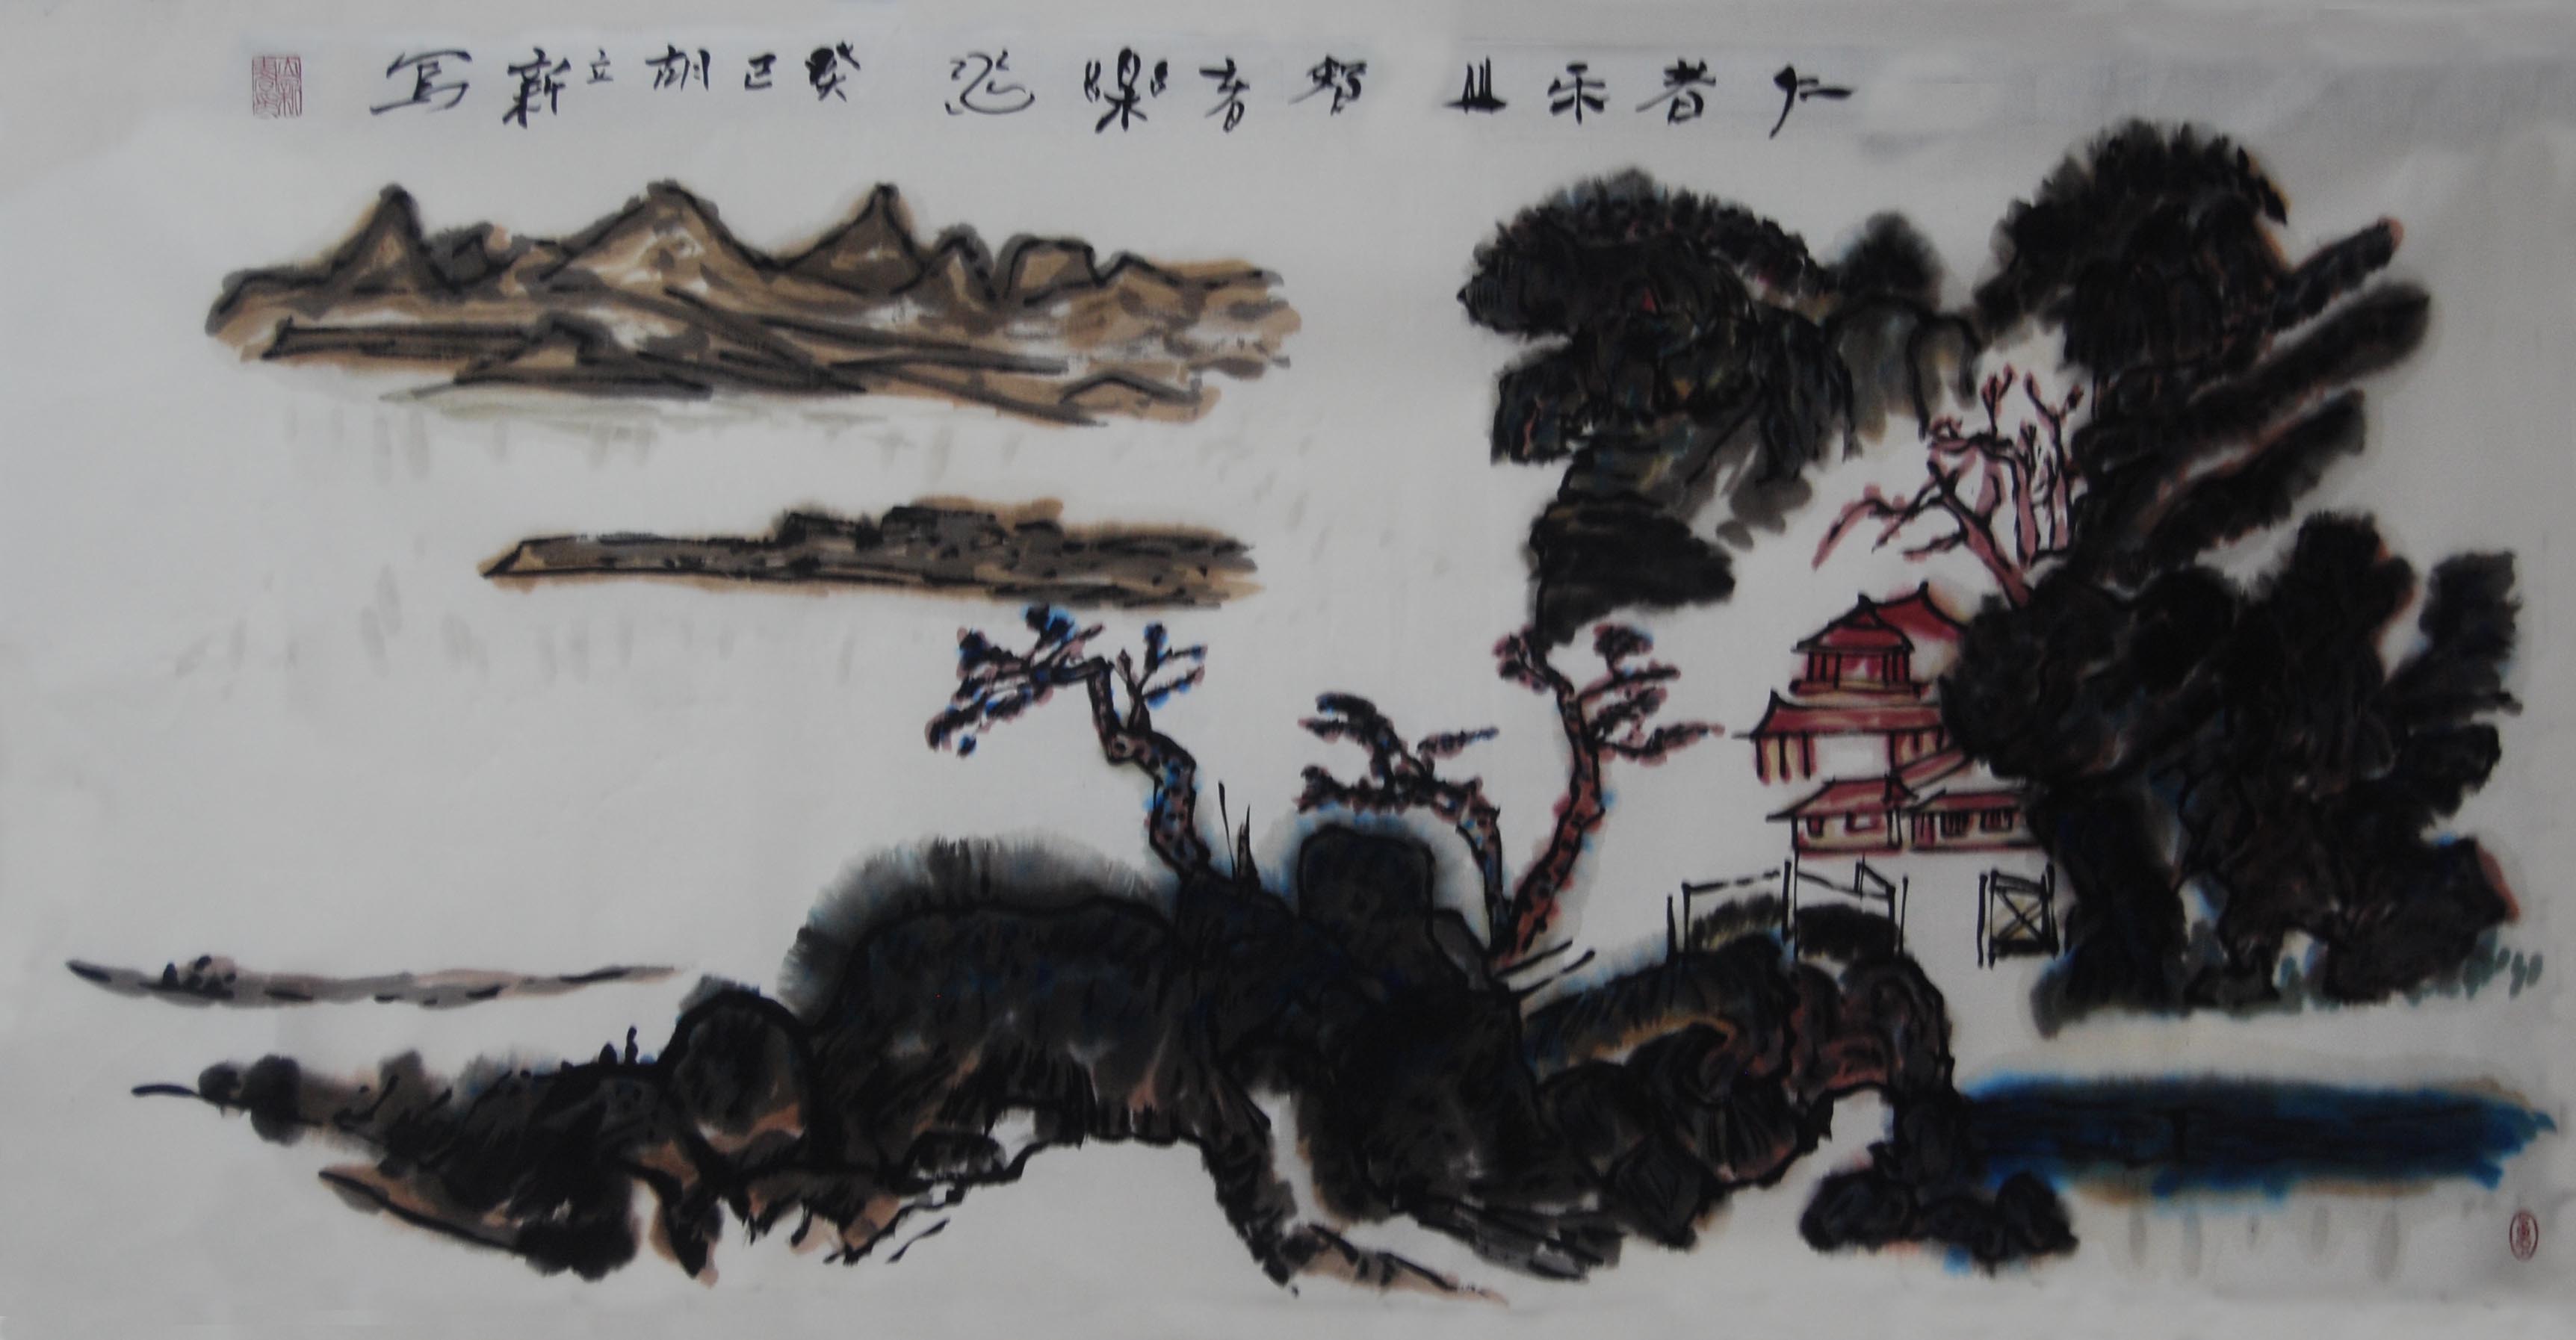 仁者乐山智者樂水癸巳胡立新写